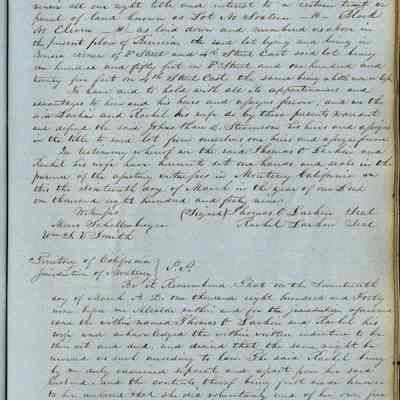 never all our right title and interest to a certain tract or
parcel of land known as Lot No fourteen - 14 - Block
No Eleven - 11 as laid down and numbered as above in
the present plan of Benicia, the said lot lying and being on
corner of D Street and 4th Street East said lot being
one hundred and fifty feet on D Street and one hundred and
twenty five feet on 4th Street East the same being
To have and to hold with all its appurtenances and
advantages to him and his heirs and assigns forever, and we the
said Larkin and Rachel his wife do by these presents warrant
and defend the said John Stevenson his heirs and assigns
in the title to said lot from ourselves our heirs and assigns forever
In testimony whereof we the said Thomas O. Larkin and
Rachel his wife have hereunto set our hands and seals in the
presence of the undersigned witnesses in Monterey California on
this the day of March in the year of our Lord
one thousand eight hundred and forty nine.
Witnesses (Signed) Thomas O Larkin Seal
Moses Schallenberger Rachel Larkin Seal
Wm. S. V. Smith
Territory of California
Jurisdiction of Monterey } S.S.
Be it Remembered That on the
day of March A. D. one thousand eight hundred and Forty
nine before me Alcalde within and for the jurisdiction aforesaid
came the within named Thomas O Larkin and Rachel his
wife and acknowledged the within written indenture to be
their act and deed, and desired that the same might be
record as such according to law. The said Rachel being
by me duly examined separate and apart from her said
husband, and the contents thereof being first made known
to her declared that she did voluntarily and of her own free